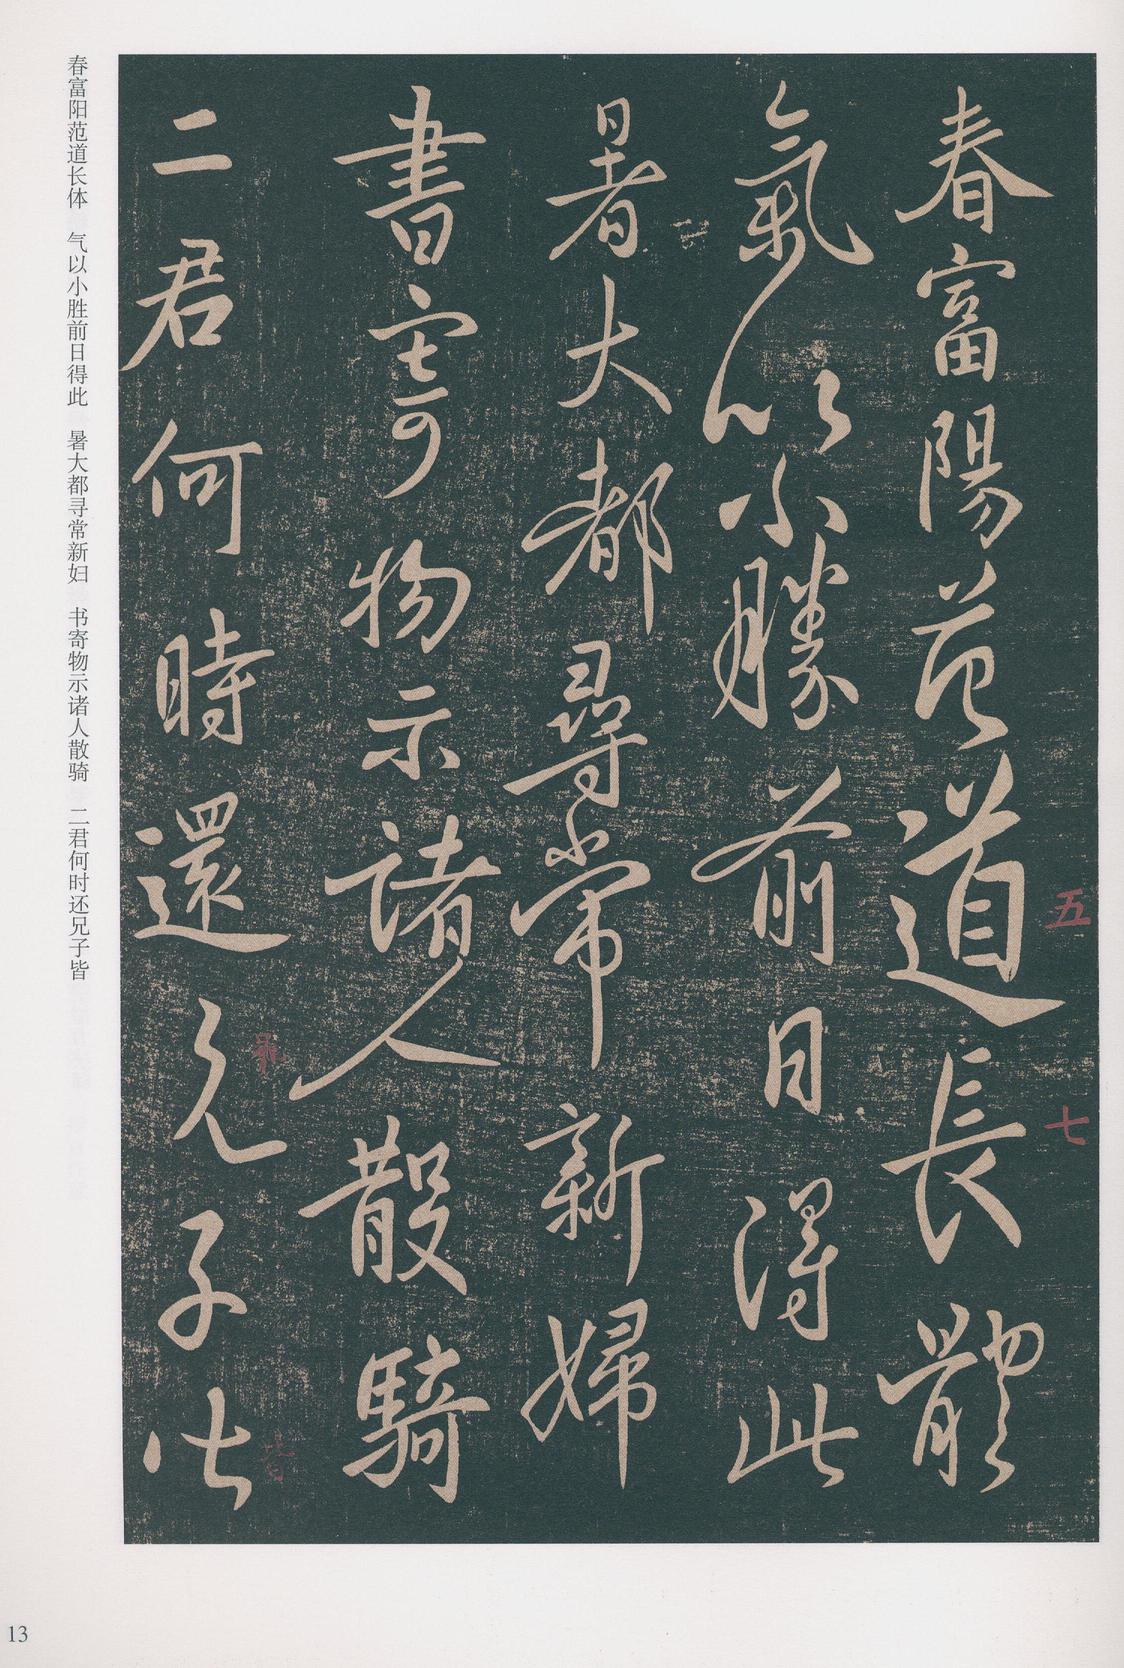 春富陽范道長體
氣以小勝前日得此
暑大都尋常新婦
書寄物示諸人散騎
二君何時還兄子皆
五
七
春富阳范道长体　气以小胜前日得此　暑大都寻常新妇　书寄物示诸人散骑　二君何时还兄子皆
13